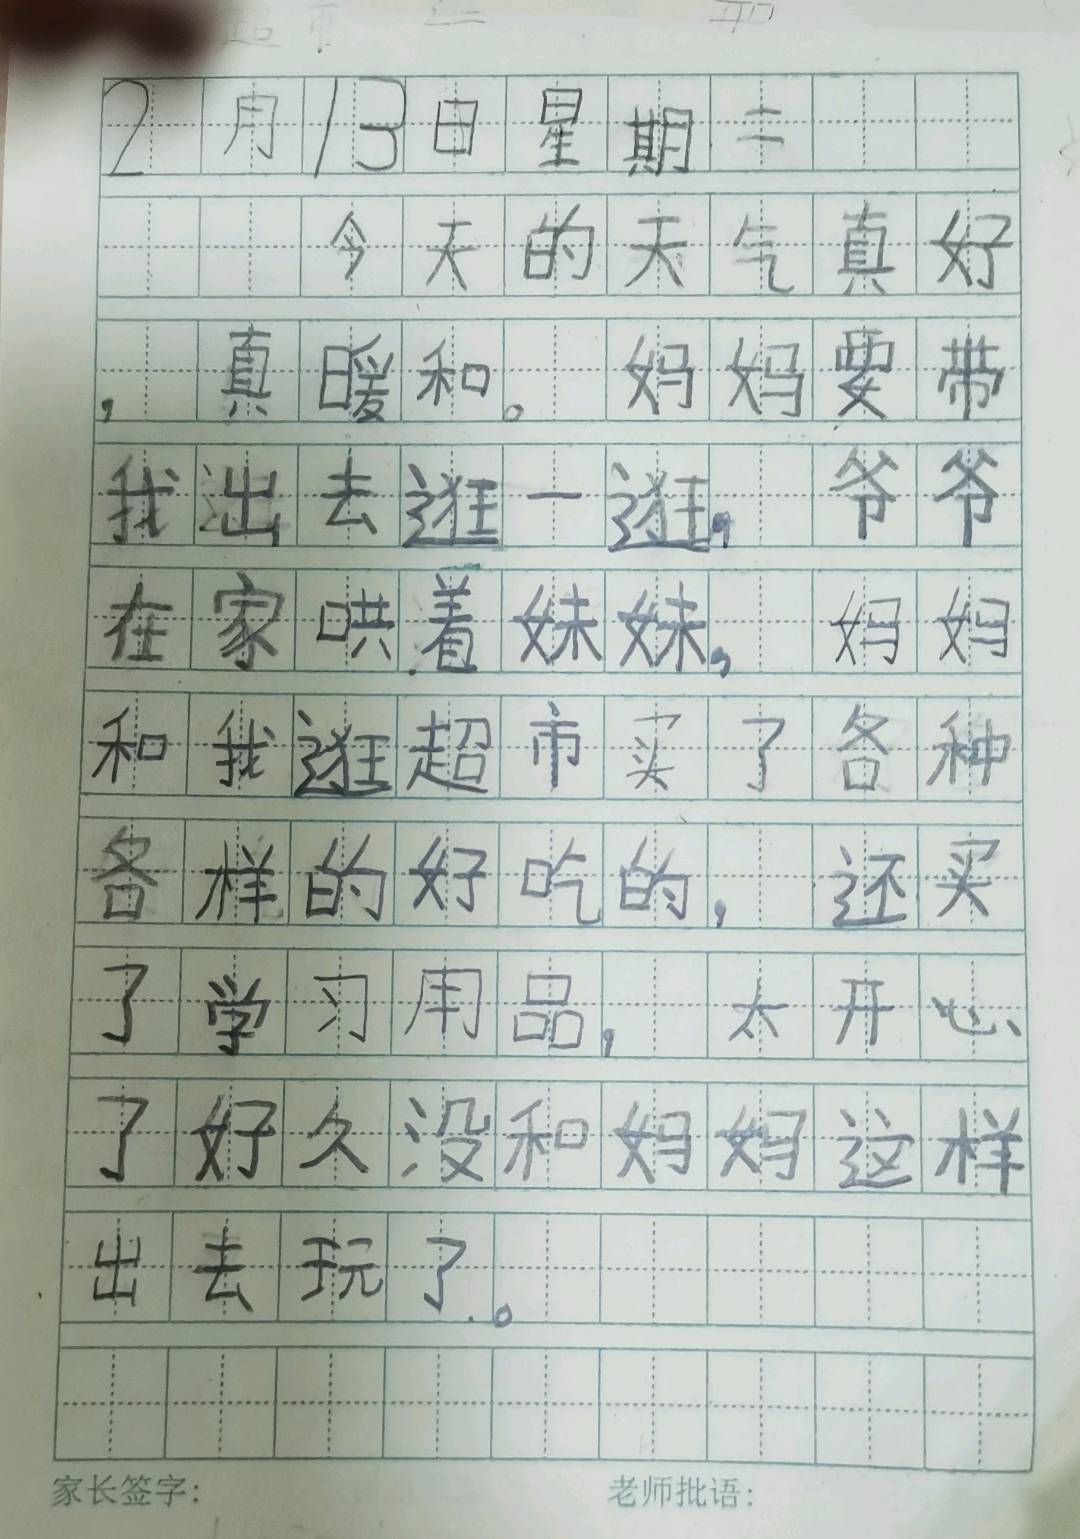 2月13日星期二
今天的天气真好
,真暖和。妈妈要带
我出去逛一逛,爷爷
在家哄着妹妹,妈妈
和我逛超市买了各种
各样的好吃的,还买
了学习用品,太开心
了好久没和妈妈这样
出去玩了。
家长签字: 老师批语: